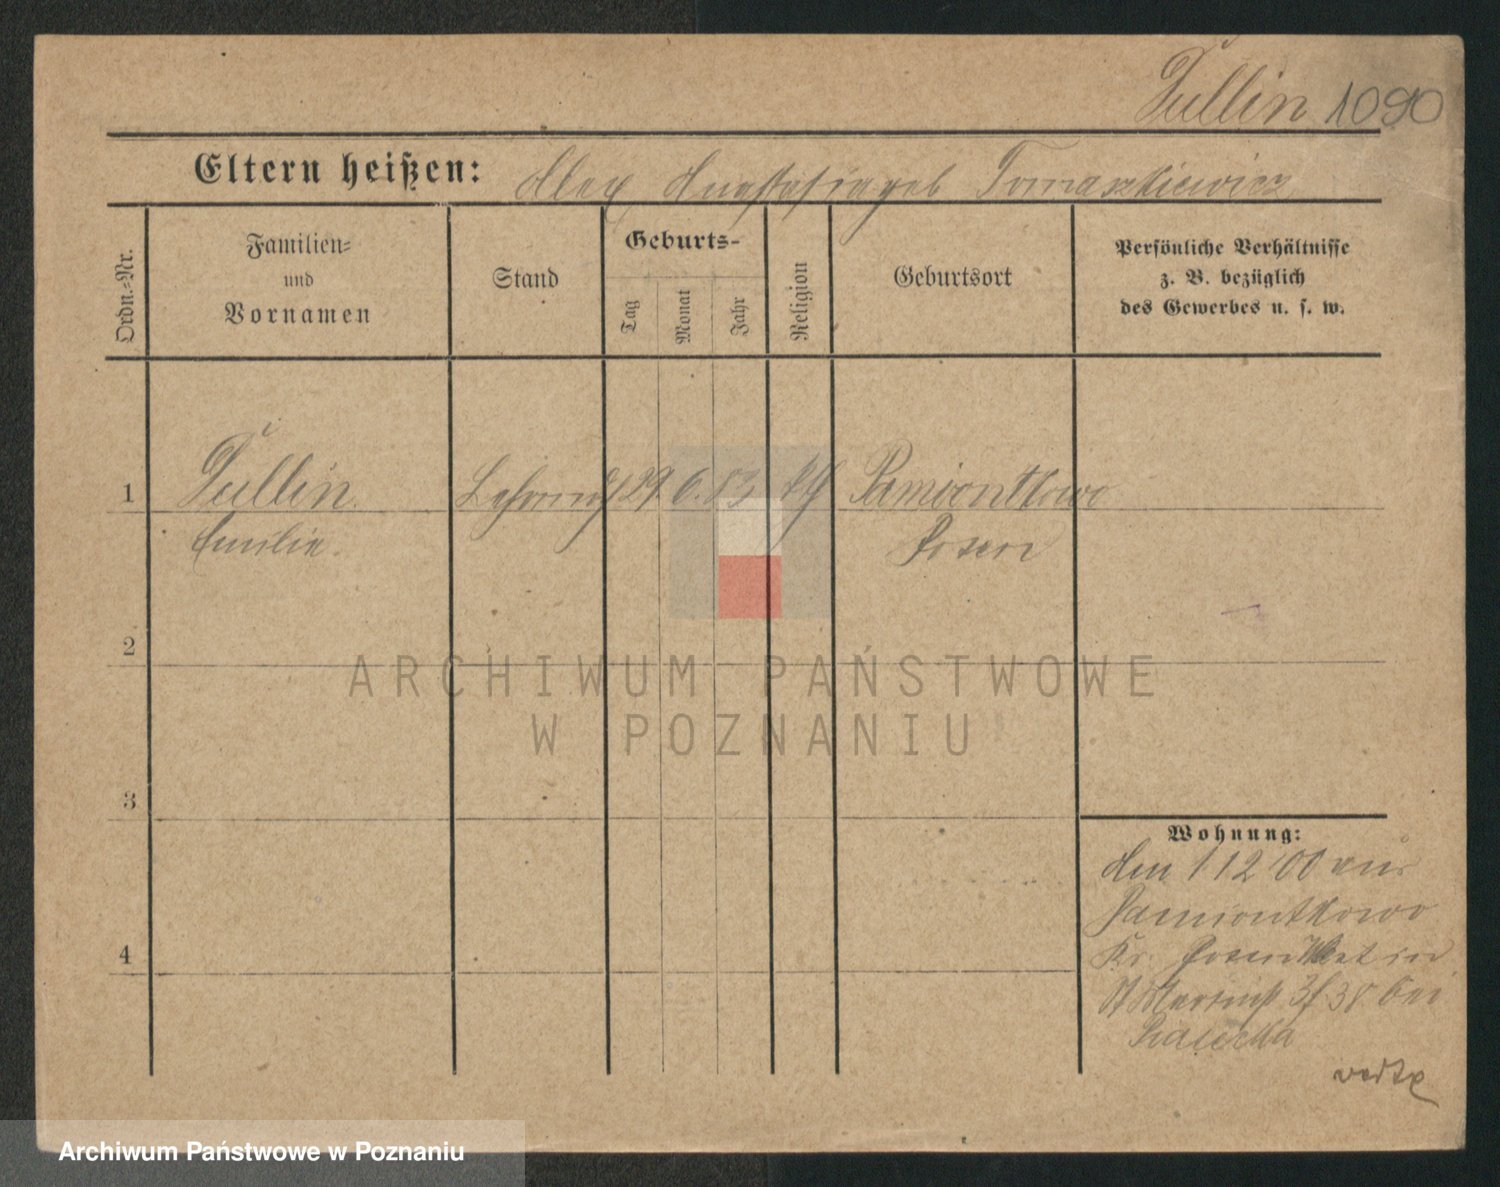 Tullin 1090
Eltern heißen: Alex Anastasia geb Tomaszkiewicz
Ordn.-Nr.
Familien-
und
Vornamen
Stand
Geburts-
Tag
Monat
Jahr
Religion
Geburtsort
Persönliche Verhältnisse
z. B. bezüglich
des Gewerbes u. s. w.
1 Tullin 29. 6. 83 Pamiontkowo
Emilie. Posen
2
3
4
Wohnung:
den 1 12 00 aus
Pamiontkowo
Kr. Posen West in
St Martinst 38 bei
verte
ARCHIWUM PAŃSTWOWE
W POZNANIU
Archiwum Państwowe w Poznaniu